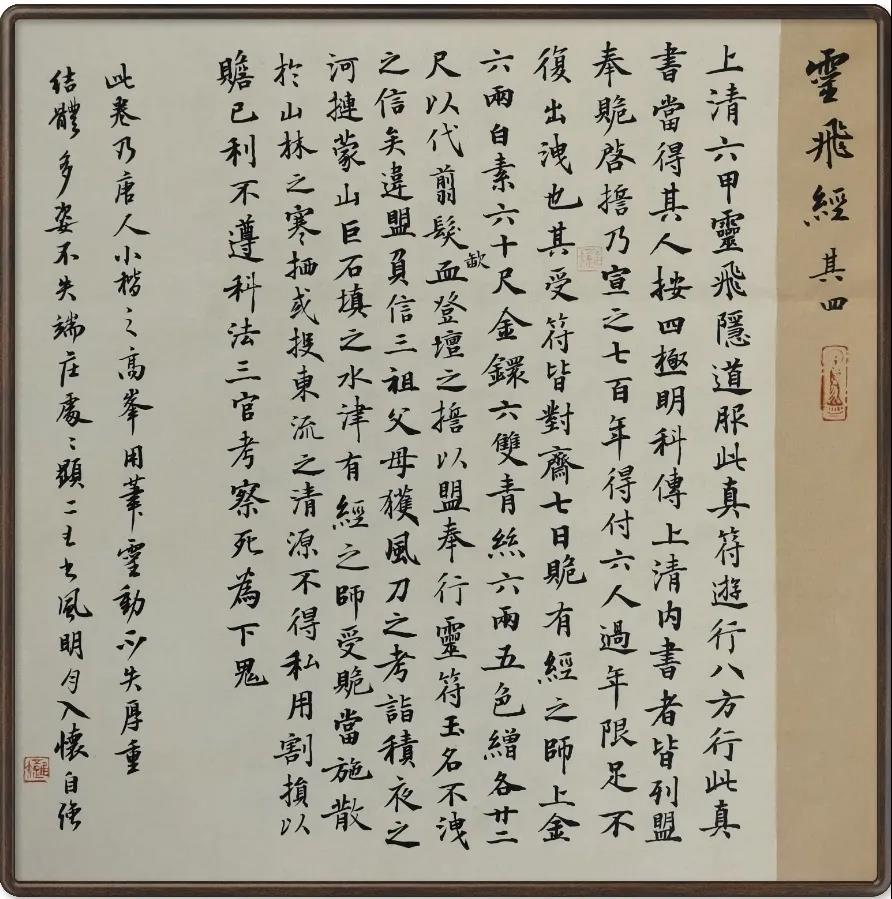 靈飛經 其四
上清六甲靈飛隱道服此真符遊行八方行此真
書當得其人按四極明科傳上清內書者皆列盟
奉䞈啓誓乃宣之七百年得付六人過年限足不
復出洩也其受符皆對齋七日䞈有經之師上金
六兩白素六十尺金鐶六雙青絲六兩五色繒各廿二
尺以代翦髮歃血登壇之誓以盟奉行靈符玉名不洩
之信矣違盟負信三祖父母獲風刀之考詣積夜之
河摙蒙山巨石填之水津有經之師受䞈當施散
於山林之寒栖或投東流之清源不得私用割損以
贍己利不遵科法三官考察死為下鬼
此卷乃唐人小楷之高峯用筆靈動不失厚重
結體多姿不失端庄處處顯二王書風明月入懷自強